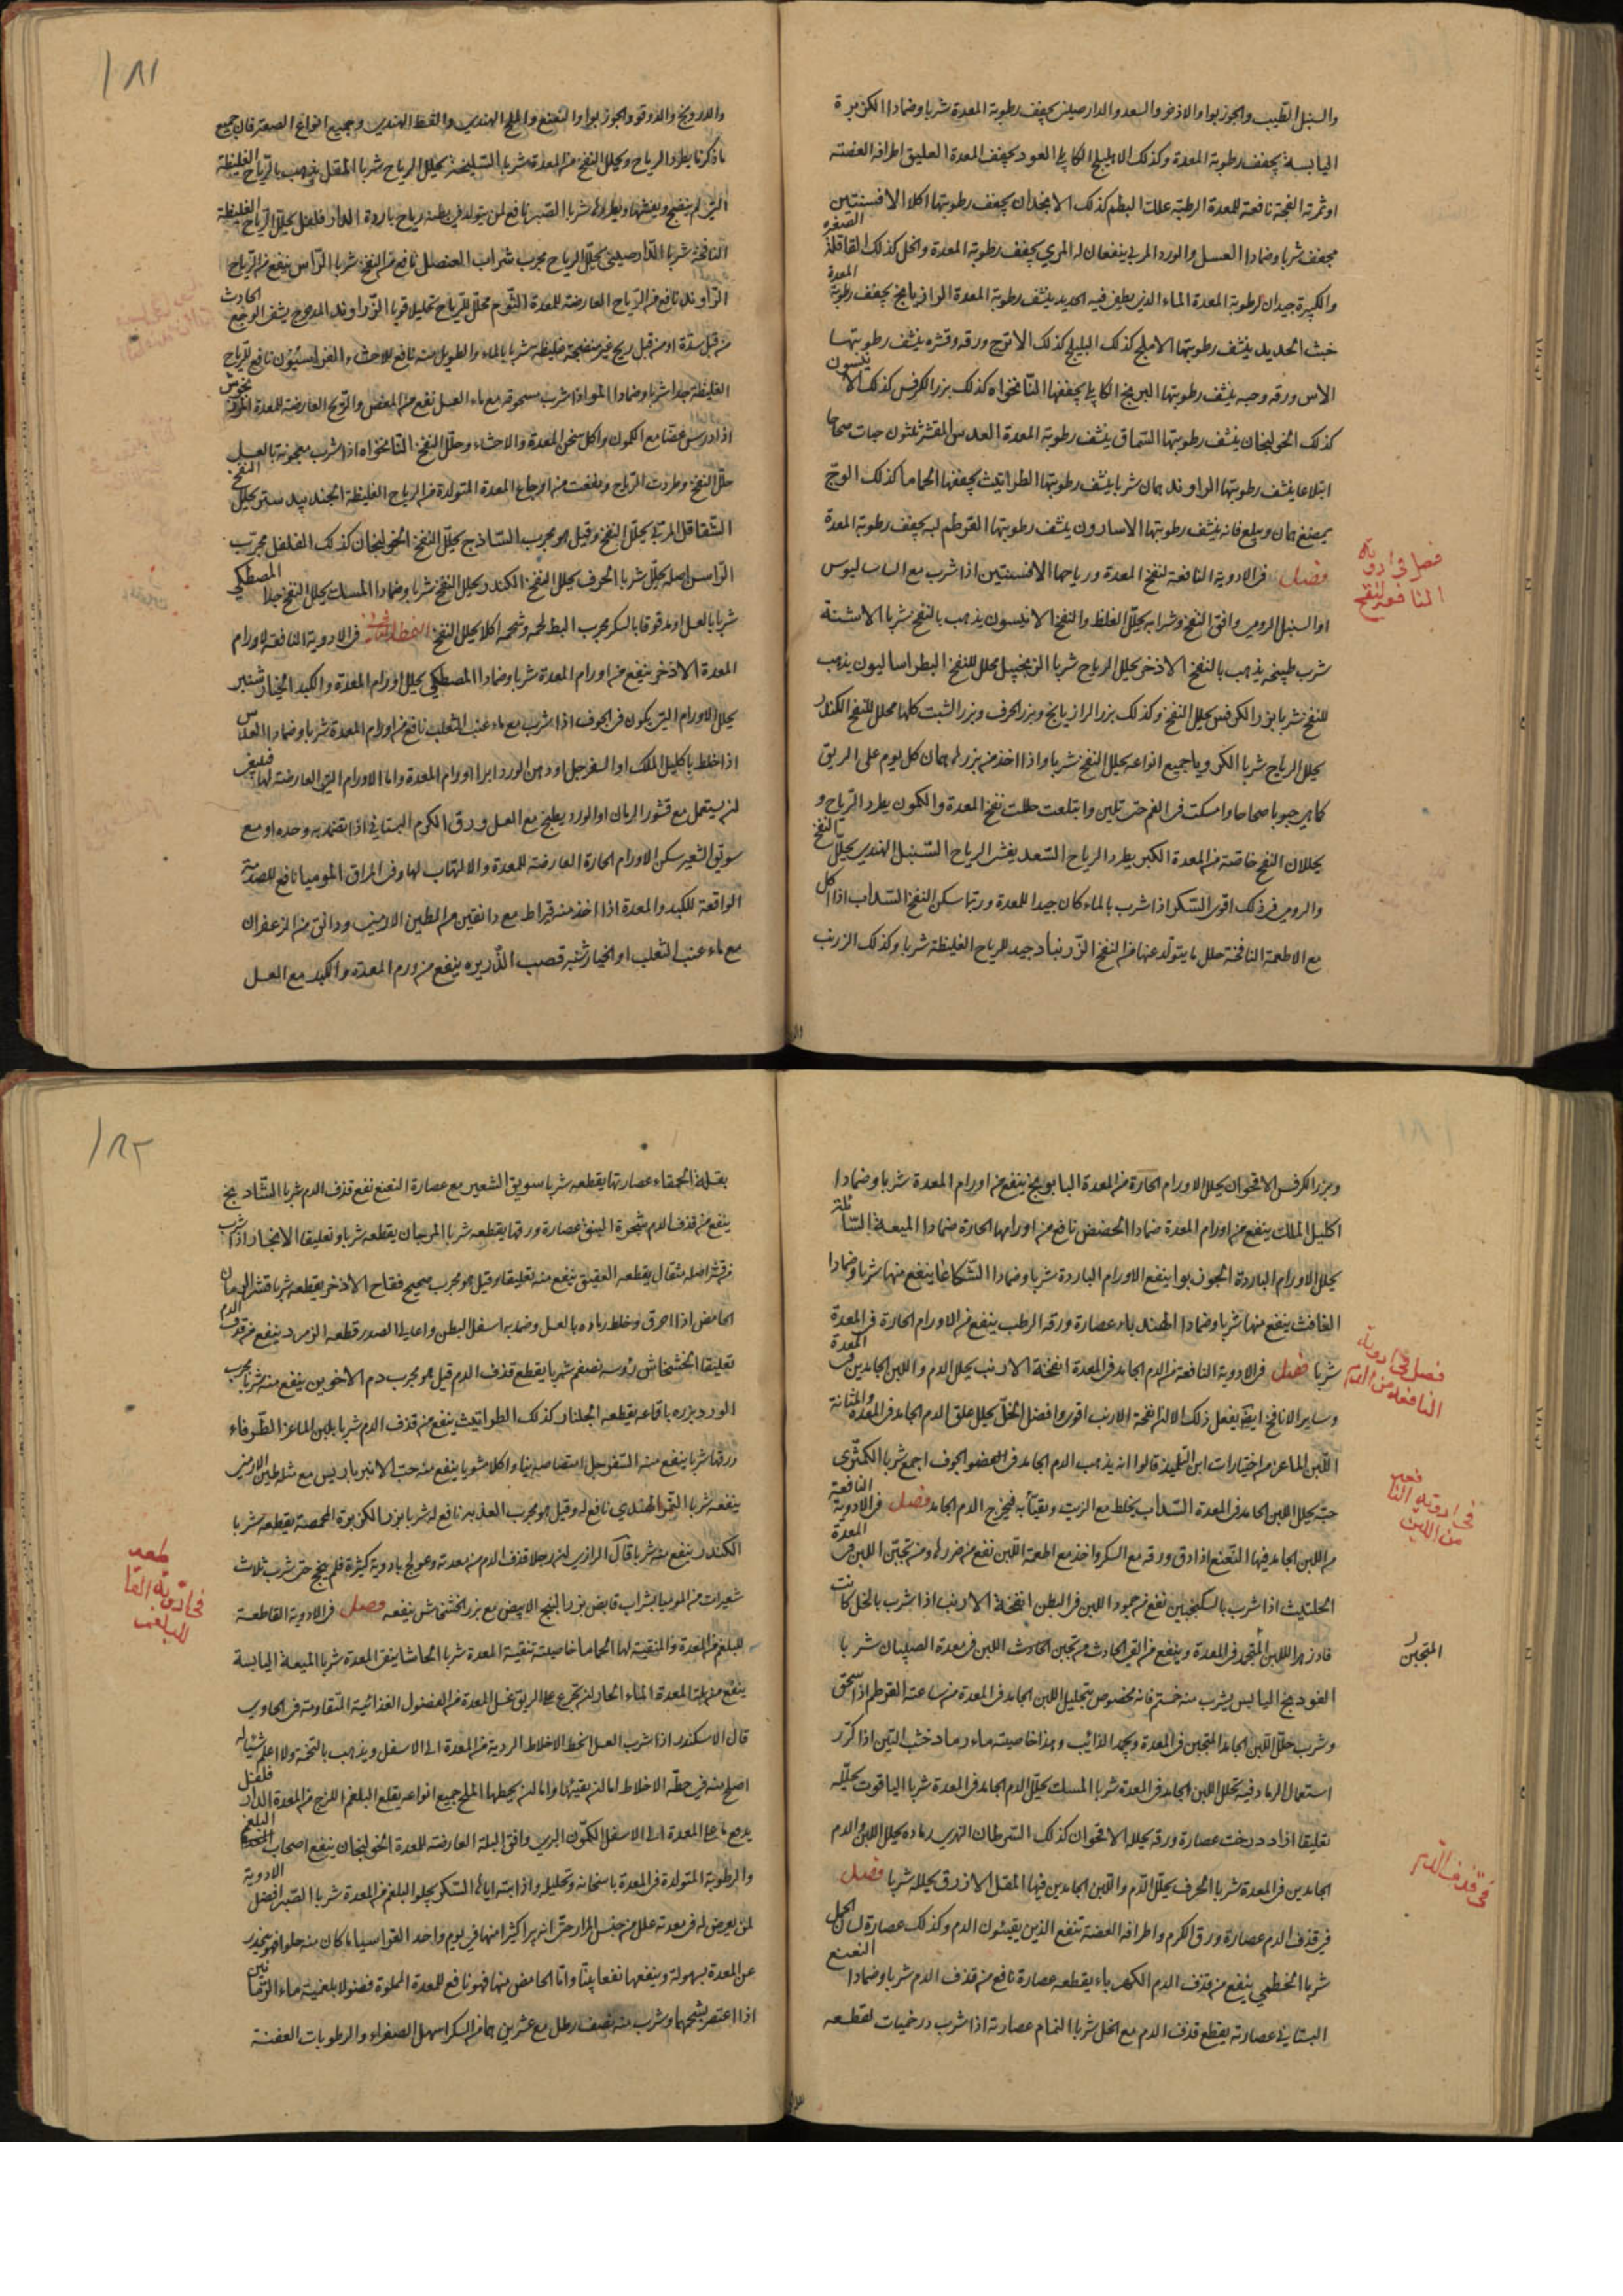 والسنبل الطيب والجوزبوا والاذخر والسعد والدارصيني يجفف رطوبة المعدة شربا وضمادا الكزبرة
اليابسة يجفف رطوبة المعدة وكذلك الاهليلج الكابلي العود يجفف المعدة العليق اطرافه الغضة
او ثمرته الفجة نافعة للمعدة الرطبة علك البطم كذلك الانجدان يجفف رطوبتها اكلا الافسنتين
مجفف شربا وضمادا العسل والورد المربى ينفعان له المري يجفف رطوبة المعدة والخل كذلك القاقلة الصغيرة
والكبيرة جيدان لرطوبة المعدة الماء الذي يطفى فيه الحديد ينشف رطوبة المعدة الرازيانج يجفف رطوبة المعدة
خبث الحديد ينشف رطوبتها الاملج كذلك البليلج كذلك الاترج ورقه وقشره ينشف رطوبتها
الاس ورقه وحبه ينشف رطوبتها البرنج الكابلي يجففها النانخواه كذلك بزر الكرفس كذلك الانيسون
كذلك الخولنجان ينشف رطوبتها السماق ينشف رطوبة المعدة العدس المقشر ثلثون حبات صحاحا
ابتلاعا ينشف رطوبتها الراوند همان شربا ينشف رطوبتها الطراثيث يجففها الحماما كذلك الوج
يمضغ همان ويبلع فانه ينشف رطوبتها الاسارون ينشف رطوبتها القرطم لبه يجفف رطوبة المعدة
فصل في الادوية النافعة لنفخ المعدة ورياحها الافسنتين اذا شرب مع الساساليوس
او السنبل الرومي وافق النفخ وشرابه يحلل الغلظ والنفخ الانيسون يذهب بالنفخ شربا الاشنة
شرب طبيخه يذهب بالنفخ الاذخر يحلل الرياح شربا الزنجبيل محلل للنفخ البطراساليون يذهب
للنفخ شربا بزر الكرفس يحلل النفخ وكذلك بزر الرازيانج وبزر الحرف وبزر الشبت كلها محلل للنفخ الكندر
يحلل الرياح شربا الكرويا جميع انواعه يحلل النفخ شربا واذا اخذ من بزره همان كل يوم على الريق
كما هي حبوبا صحاحا وامسكت في الفم حتى تلين وابتلعت حللت نفخ المعدة والكمون يطرد الرياح و
يحللان النفخ خاصة من المعدة الكبر يطرد الرياح السعد يفش الرياح السنبل الهندي يحلل النفخ
والرومي في ذلك اقوى السكر اذا شرب بالماء كان جيدا للمعدة وربما سكن النفخ السداب اذا اكل
مع الاطعمة النافخة حلل ما يتولد عنها من النفخ الزرنباد جيد للرياح الغليظة شربا وكذلك الزرنب
فصل في ادوية
النافعة لنفخ
١٨١
والدرونج والدوقو والجوزبوا والنعنع والملح الهندي والقسط الهندي وجميع انواع الصعتر فان جميع
ما ذكرنا يطرد الرياح ويحلل النفخ من المعدة شربا السليخة يحلل الرياح شربا المقل يذهب بالرياح الغليظة
التي لم ينضج ويفشها ويطردها شربا الصبر نافع لمن يتولد في بطنه رياح باردة الدارفلفل يحلل الرياح الغليظة
النافخة شربا الدارصيني يحلل الرياح مجرب شراب العنصل نافع من النفخ شربا الراسن ينفع من الرياح
الراوند نافع من الرياح العارضة للمعدة الثوم محلل للرياح تحليلا قويا الزراوند المدحرج يشفى الوجع الحادث
من قبل سدة او من قبل ريح غير منضجة غليظة شربا بالماء والطويل منه نافع للاحشاء
الغليظة جدا شربا وضمادا المو اذا شرب مسحوقه مع ماء العسل نفع من المغص والريح العارضة للمعدة
اذا درس غضا مع الكمون واكل سخن المعدة والاحشاء وحلل النفخ النانخواه اذا شرب معجونة بالعسل
حلل النفخ وطردت الرياح ونفعت من اوجاع المعدة المتولدة من الرياح الغليظة الجندبيدستر يحلل النفخ
الشقاقل المربى يحلل النفخ وقيل هو مجرب الساذج يحلل النفخ الخولنجان كذلك الفلفل مجرب
الراسن اصله يحلل شربا الحرف يحلل النفخ الكندر يحلل النفخ شربا وضمادا المسك يحلل النفخ جدا المصطكي
شربا بالعسل او مدقوقا بالسكر مجرب البط لحمه وشحمه اكلا يحلل النفخ في الادوية النافعة لاورام
المعدة الاذخر ينفع من اورام المعدة شربا وضمادا المصطكي يحلل اورام المعدة والكبد الخيارشنبر
يحلل الاورام التي يكون في الجوف اذا شرب مع ماء عنب الثعلب نافع من اورام المعدة شربا وضمادا العدس
اذا خلط باكليل الملك او السفرجل او دهن الورد ابرا اورام المعدة واما الاورام التي العارضة لها فينبغي
ان يستعمل مع قشور الرمان او الورد يطبخ مع العسل ورق الكرم البستاني اذا تضمد به وحده او مع
سويق الشعير سكن الاورام الحارة العارضة للمعدة والالتهاب لها وفي المراق الموميا نافع للصدمة
الواقعة للكبد والمعدة اذا اخذ منه قيراط مع دانقين من الطين الارمني ودانق من الزعفران
مع ماء عنب الثعلب او الخيارشنبر قصب الذريره ينفع من ورم المعدة والكبد مع العسل
وبزر الكرفس الاقحوان يحلل الاورام الحارة من المعدة البابونج ينفع من اورام المعدة شربا وضمادا
اكليل الملك ينفع من اورام المعدة ضمادا الحضض نافع من اورامها الحارة ضمادا الميعة السائلة
يحلل الاورام الباردة الجوزبوا ينفع الاورام الباردة شربا وضمادا الشكاعا ينفع منها شربا وضمادا
الغافث ينفع منها شربا وضمادا الهندباء عصارة ورقه الرطب ينفع من الاورام الحارة في المعدة
شربا فصل في الادوية النافعة من الدم الجامد في المعدة انفخة الارنب يحلل الدم واللبن الجامدين في المعدة
وساير الانافخ ايضا يفعل ذلك الا ان انفخة الارنب اقوى وافضل الخل يحلل علق الدم الجامد في المعدة والمثانة
اللبن الماعز من اختيارات ابن التلميذ قالوا انه يذهب الدم الجامد في العضو الجوف اجمع شربا الكمثرى
حبه يحلل اللبن الجامد في المعدة السداب يخلط مع الزيت ويقيأ به فيخرج الدم الجامد فصل في الادوية النافعة
من اللبن الجامد فيها النعنع اذا دق ورقه مع السكر واخذ مع اطعمة اللبن نفع من ضرره ومن تجبن اللبن في المعدة
الحلتيث اذا شرب بالسكنجبين نفع من جمود اللبن في البطن انفخة الارنب اذا شرب بالخل كانت
فادزهرا للبن المتجمد في المعدة وينفع من القئ الحادث من تجبن الحادث اللبن في معدة الصبيان شربا
الفودنج اليابس يشرب منه خمسة فانه مخصوص بتحليل اللبن الجامد في المعدة من ساعته القرطم اذا سحق
وشرب حلل اللبن الجامد المتجبن في المعدة ويجمد الذائب وهذا خاصيته ماء رماد خشب التين اذا كرر
استعمال الرماد فيه يحلل اللبن الجامد في المعدة شربا المسك يحلل الدم الجامد في المعدة شربا الياقوت يحلله
تعليقا ازاد درخت عصارة ورقه يحلله الاقحوان كذلك السرطان النهري رماده يحلل اللبن والدم
الجامدين في المعدة شربا الحرف يحلل الدم واللبن الجامدين فيها المقل الازرق يحلله شربا فصل
في قذف الدم عصارة ورق الكرم واطرافه الغضة تنفع الذين يقيئون الدم وكذلك عصارة لسان الحمل
شربا الخطمي ينفع من قذف الدم الكهرباء يقطعه عصارة نافع من قذف الدم شربا وضمادا النعنع
البستاني عصارته يقطع قذف الدم مع الخل شربا النمام عصارته اذا شرب درخميات لقطعه
فصل في ادوية
النافعة من الدم
في ادوية النافعة
من اللبن
المتجبن
في قذف الدم
١٨٢
بقلة الحمقاء عصارتها يقطعه شربا سويق الشعير مع عصارة النعنع نفع قذف الدم شربا الشادنج
ينفع من قذف الدم شجرة الينق عصارة ورقها يقطعه شربا المرجان يقطعه شربا وتعليقا الانجبار اذا شرب
من قشر اصله مثقال يقطعه العقيق ينفع منه تعليقا وقيل هو مجرب صحيح فقاح الاذخر يقطعه شربا قشر الرمان
الحامض اذا احرق وخلط رماده بالعسل وضمد به اسفل البطن واعالي الصدر قطعه الزمرد ينفع من قذف الدم
تعليقا الخشخاش رؤسه نصفم شربا يقطع قذف الدم قيل هو مجرب دم الاخوين ينفع منه شربا مجرب
الورد بزره باقماعه يقطعه الجلنار كذلك الطراثيث ينفع من قذف الدم شربا بلبن الماعز الطرفاء
ورقها شربا ينفع منه السفرجل امتصاصه نيا واكلا مشويا ينفع منه حب الانبرباريس مع مثله طين الارمني
ينفعه شربا التمر الهندي نافع له وقيل هو مجرب العدبه نافع له شربا بزر الكزبرة المحمصة يقطعه شربا
الكندر ينفع منه شربا قال الرازي ان رجلا قذف الدم من معدته وعولج بادوية كثيرة فلم ينجح حتى شرب ثلاث
شعيرات من الموميا بشراب قابض بزر البنج الابيض مع بزر الخشخاش ينفعه فصل في الادوية القاطعة
للبلغم من المعدة والمنقية لها الحماما خاصيته تنقية المعدة شربا الحاشا ينقى المعدة شربا الميعة اليابسة
ينفع من بلة المعدة الماء الحار ان تجرع على الريق غسل المعدة من الفضول الغذائية المتقاومة في الحاوي
قال الاسكندر اذا شرب العسل الخط الاخلاط الردية من المعدة الى الاسفل ويذهب بالتخمة ولا اعلم شيئا له
اصلح منه في حطه الاخلاط اما ان يقيئها واما ان يحطها الملح جميع انواعه يقلع البلغم اللزج من المعدة الدارفلفل
يدفع ما في المعدة الى الاسفل الكمون البري وافق البلة العارضة للمعدة الخولنجان ينفع اصحاب البلغم
والرطوبة المتولدة في المعدة باسخانه وتحليله واذابته اياها السكر يجلو البلغم من المعدة شربا الصبر افضل الادوية
لمن يعرض له في معدته علل من جنس المرار حتى انه يبرا كثيرا منها في يوم واحد القراسيا ما كان منه حلوا فهو ينحدر
عن المعدة بسهولة وينفعها نفعا بينا واما الحامض منها فهو نافع للمعدة المملوة فضولا بلغمية ماء الرمانين
اذا اعتصر بشحمهما وشرب منه نصف رطل مع عشرين همان السكر اسهل الصفراء والرطوبات العفنة
في ادوية القاطعه
للبلغم